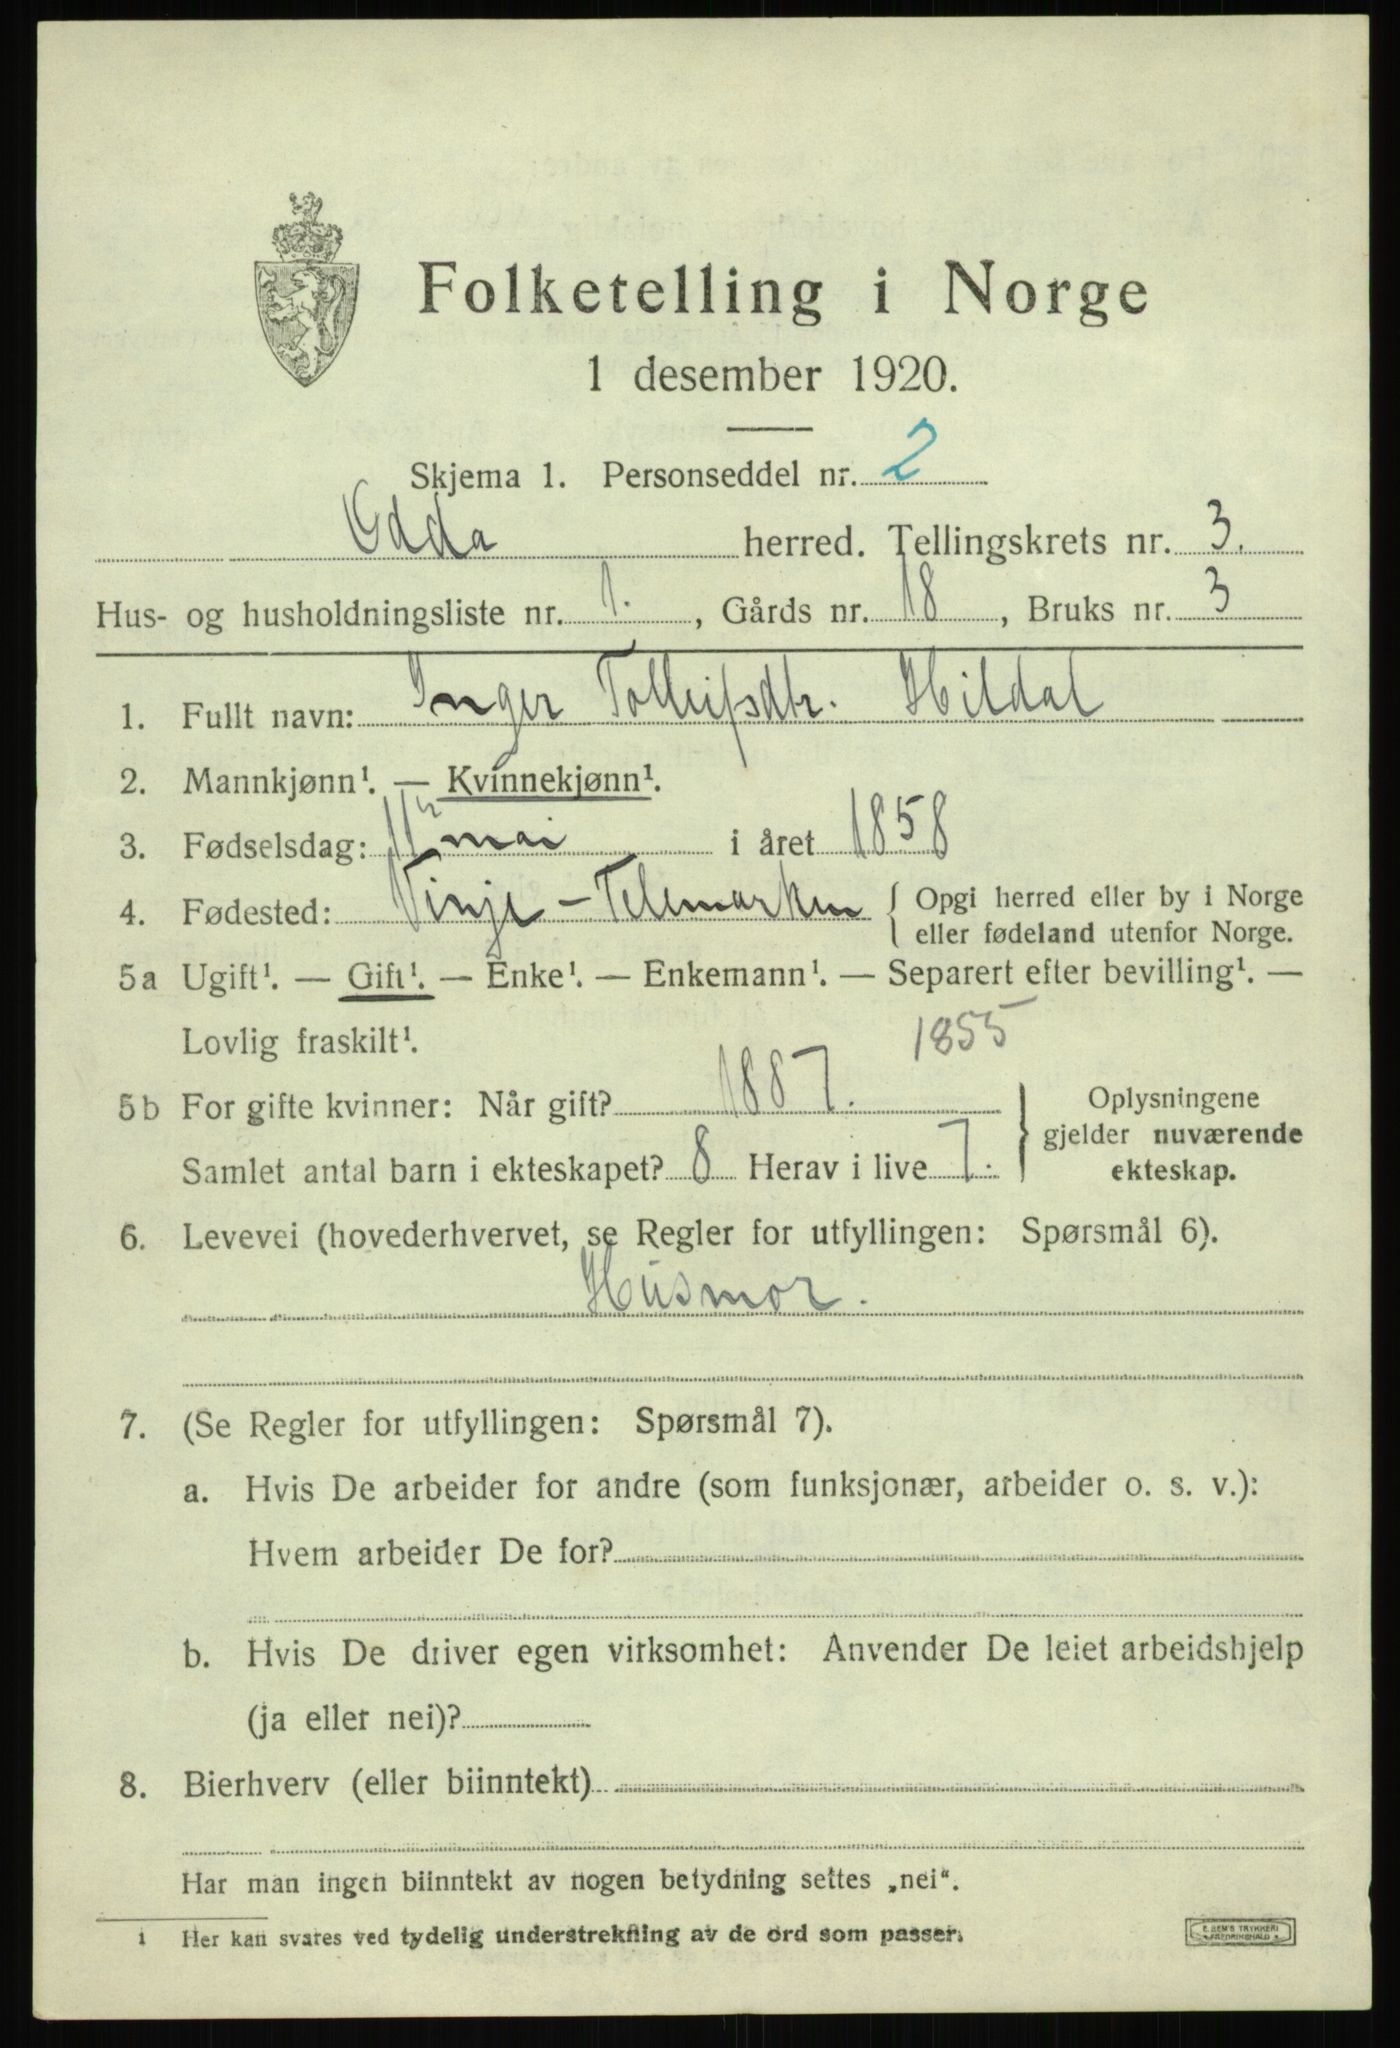 Folketelling i Norge
1 desember 1920.
Skjema 1. Personseddel nr. 2
Odda herred. Tellingskrets nr. 3.
Hus- og husholdningsliste nr. 1. , Gårds nr. 18 , Bruks nr. 3
1. Fullt navn: Inger Tolleifsdtr. Hildal
2. Mannkjønn¹. — Kvinnekjønn¹.
3. Fødselsdag: 11 mai i året 1858
4. Fødested: Vinje - Telemarken { Opgi herred eller by i Norge
eller fødeland utenfor Norge.
5a Ugift¹. — Gift¹. — Enke¹. — Enkemann¹. — Separert efter bevilling¹. —
Lovlig fraskilt¹. 1855
5b For gifte kvinner: Når gift? 1887. } Oplysningene
gjelder nuværende
Samlet antal barn i ekteskapet? 8 Herav i live 7. ekteskap.
6. Levevei (hovederhvervet, se Regler for utfyllingen: Spørsmål 6).
Husmor.
7. (Se Regler for utfyllingen: Spørsmål 7).
a. Hvis De arbeider for andre (som funksjonær, arbeider o. s. v.):
Hvem arbeider De for?
b. Hvis De driver egen virksomhet: Anvender De leiet arbeidshjelp
(ja eller nei)?
8. Bierhverv (eller biinntekt)
Har man ingen biinntekt av nogen betydning settes „nei“.
1 Her kan svares ved tydelig understrekning av de ord som passer.
E. SEM'S TRYKKERI
FREDRIKSHALD